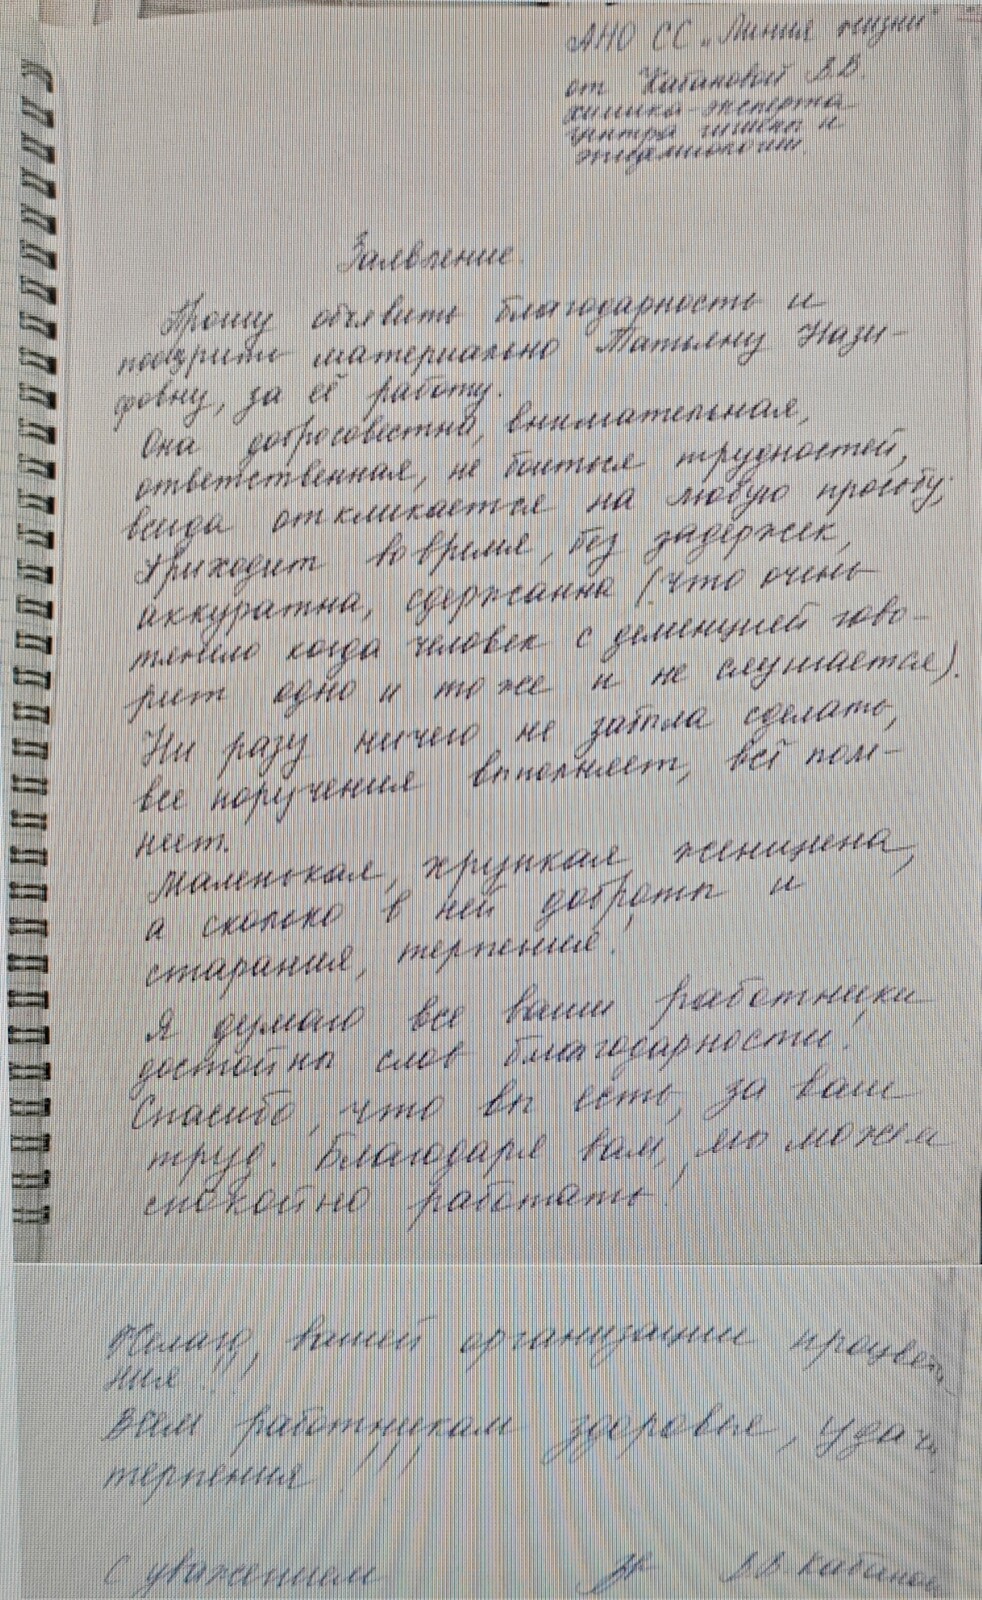 АНО СС „Линия жизни"
от Кабановой В.В.
химика-эксперта
центра гигиены и
эпидемиологии.
Заявление.
Прошу объявить благодарность и
поощрить материально Татьяну Нази-
фовну, за её работу.
Она добросовестна, внимательная,
ответственная, не боится трудностей,
всегда откликается на любую просьбу,
Приходит во время, без задержек,
аккуратна, сдержанна (что очень
тяжело когда человек с деменцией гово-
рит одно и то же и не слушается).
Ни разу ничего не забыла сделать,
все поручения выполняет, всё пом-
нит.
Маленькая, хрупкая женщина,
а сколько в ней доброты и
старания, терпения!
Я думаю все ваши работники
достойны слов благодарности!
Спасибо, что вы есть, за ваш
труд. Благодаря вам, мы можем
спокойно работать!
Желаю, вашей организации процвета-
ния!!!
Всем работникам здоровья, удачи,
терпения!!!
С уважением В.В. Кабанова